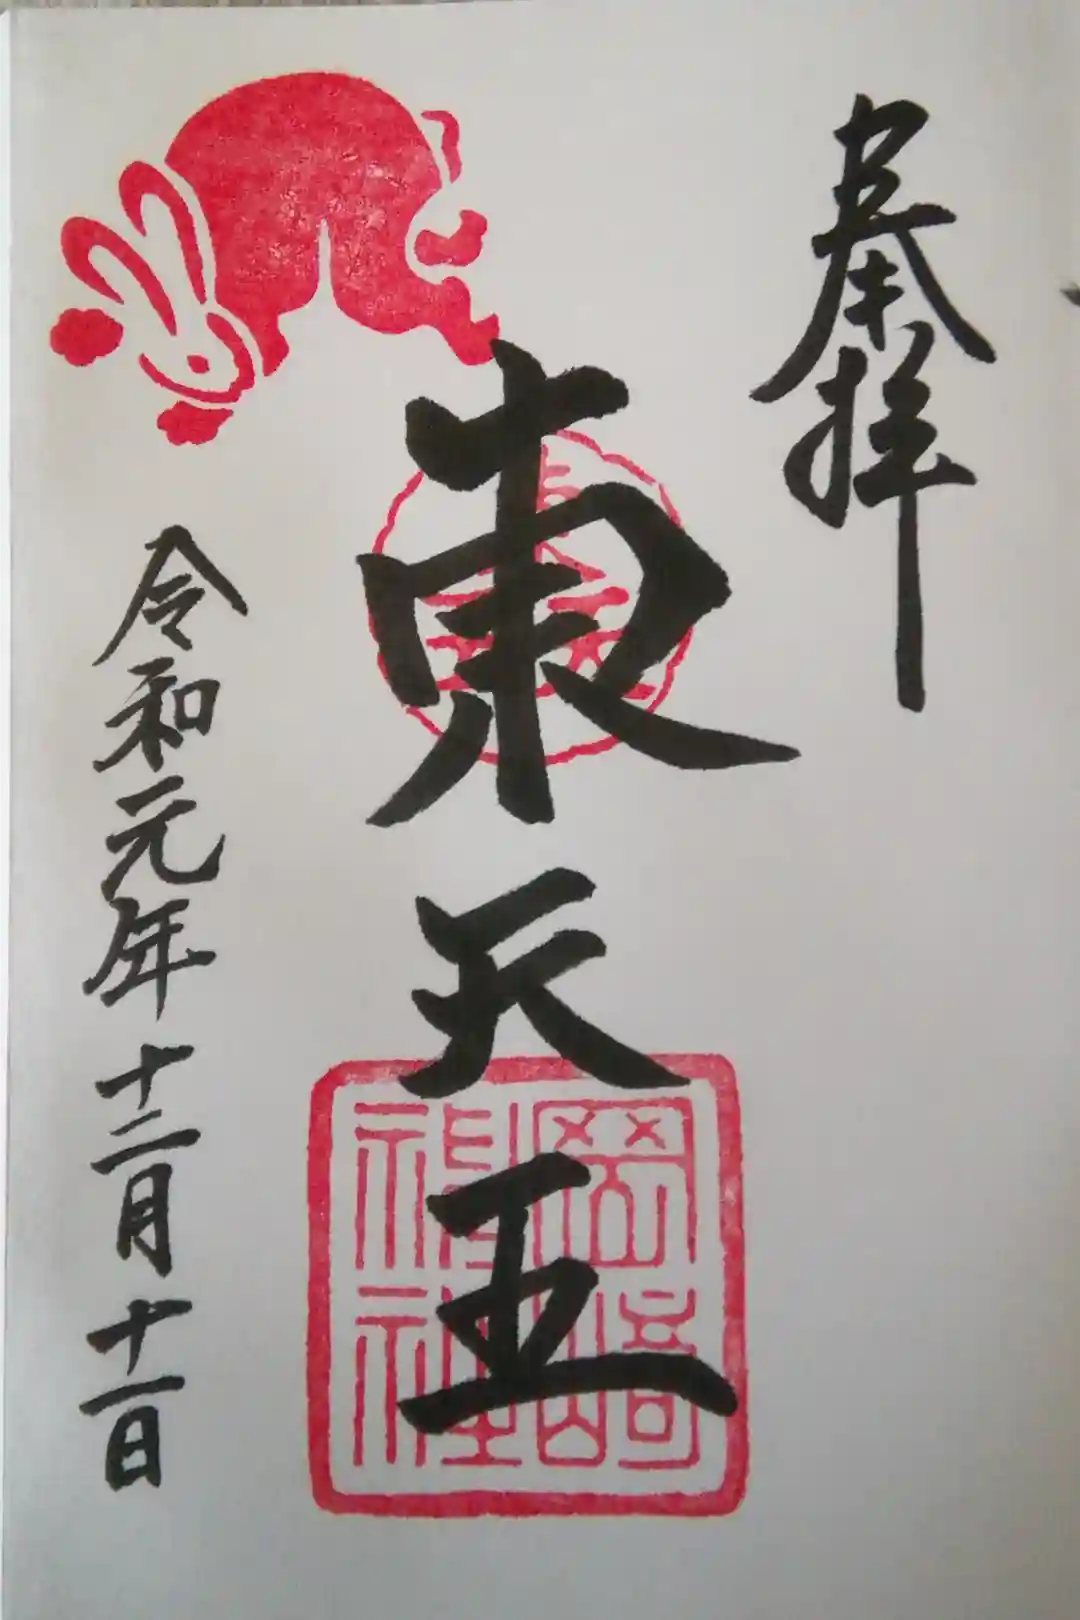 奉拝
東天王
岡﨑
神社
令和元年十二月十一日